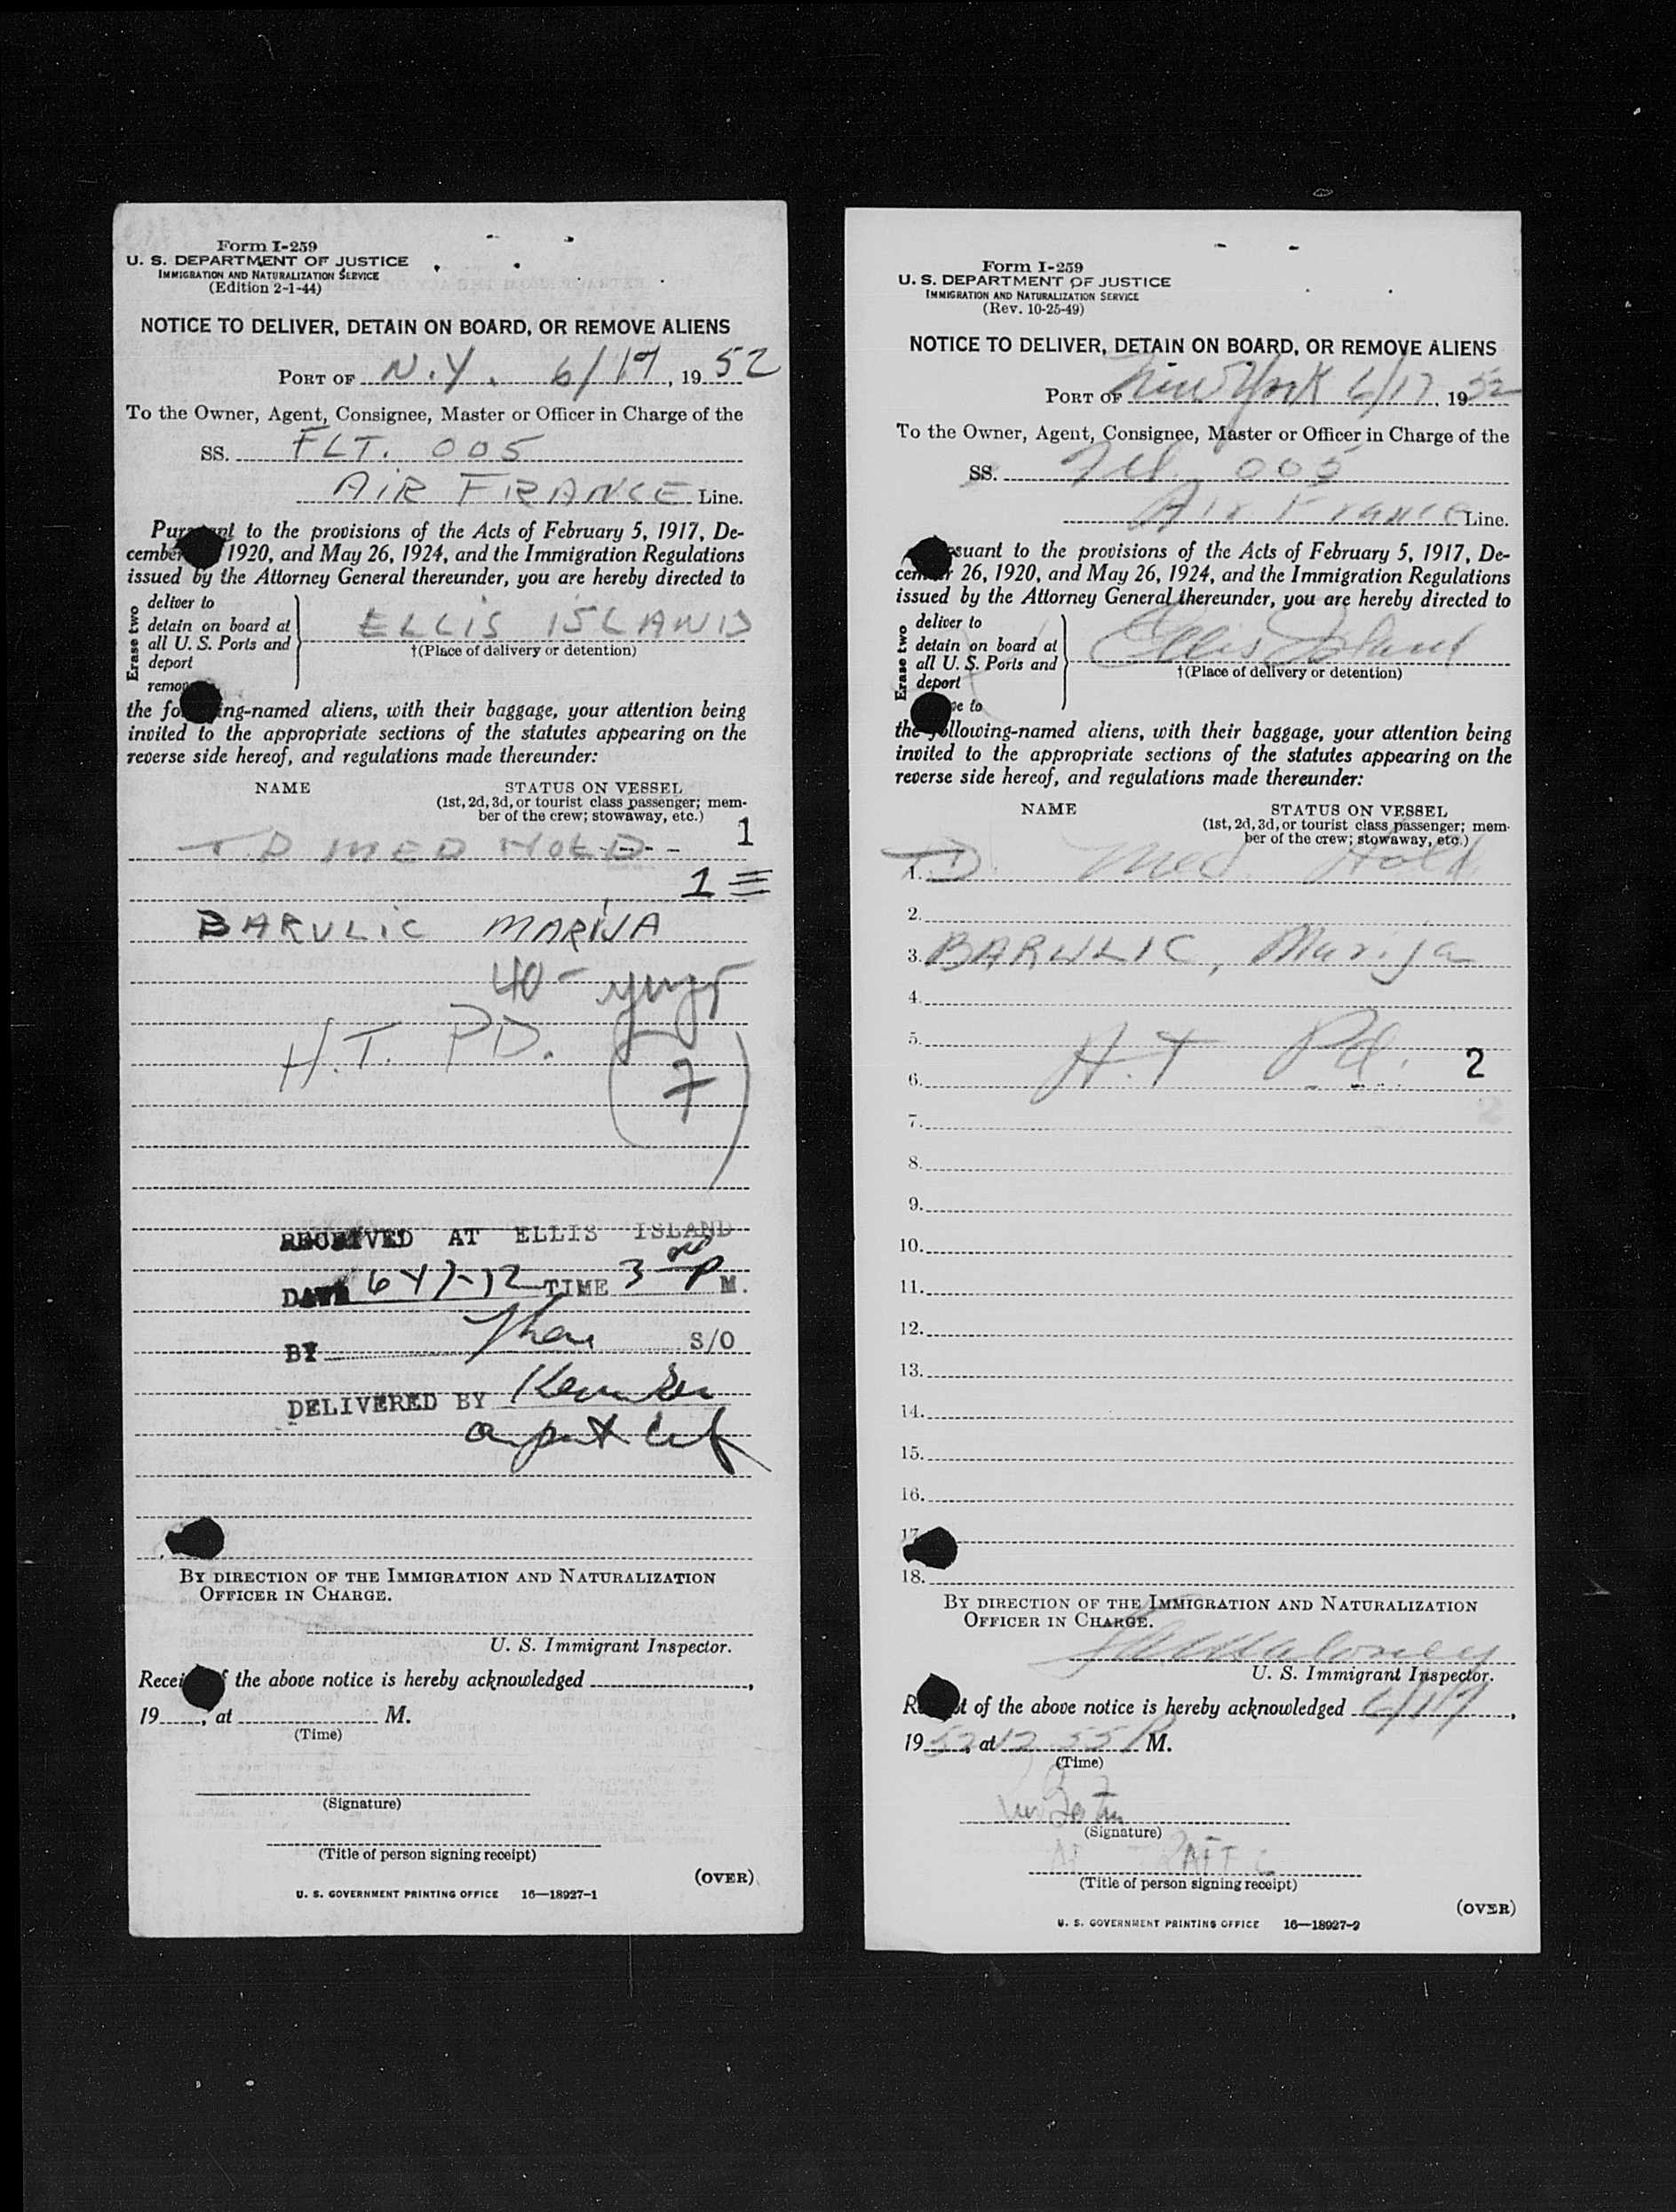 Form I-259
U. S. DEPARTMENT OF JUSTICE
IMMIGRATION AND NATURALIZATION SERVICE
(Edition 2-1-44)
NOTICE TO DELIVER, DETAIN ON BOARD, OR REMOVE ALIENS
PORT OF N.Y. 6/17, 1952
To the Owner, Agent, Consignee, Master or Officer in Charge of the
SS. FLT. 005
AIR FRANCE Line.
to the provisions of the Acts of February 5, 1917, De-
cember 1920, and May 26, 1924, and the Immigration Regulations
issued by the Attorney General thereunder, you are hereby directed to
Erase two
deliver to
detain on board at
all U. S. Ports and
deport
ELLIS ISLAND
†(Place of delivery or detention)
the following-named aliens, with their baggage, your attention being
invited to the appropriate sections of the statutes appearing on the
reverse side hereof, and regulations made thereunder:
NAME STATUS ON VESSEL
(1st, 2d, 3d, or tourist class passenger; mem-
ber of the crew; stowaway, etc.) 1
T.D MED HOLD
1
BARULIC MARIJA
40-
H.T. PD.
7
RECEIVED AT ELLIS ISLAND
DATE TIME 3 00 P M.
BY S/O
DELIVERED BY
BY DIRECTION OF THE IMMIGRATION AND NATURALIZATION
OFFICER IN CHARGE.
U. S. Immigrant Inspector.
the above notice is hereby acknowledged ,
19 , at M.
(Time)
(Signature)
(Title of person signing receipt)
(OVER)
U. S. GOVERNMENT PRINTING OFFICE 16—18927-1
Form I-259
U. S. DEPARTMENT OF JUSTICE
IMMIGRATION AND NATURALIZATION SERVICE
(Rev. 10-25-49)
NOTICE TO DELIVER, DETAIN ON BOARD, OR REMOVE ALIENS
PORT OF New York 6/17, 1952
To the Owner, Agent, Consignee, Master or Officer in Charge of the
SS. 005
Air France Line.
suant to the provisions of the Acts of February 5, 1917, De-
cember 26, 1920, and May 26, 1924, and the Immigration Regulations
issued by the Attorney General thereunder, you are hereby directed to
Erase two
deliver to
detain on board at
all U. S. Ports and
deport
to
Ellis Island
†(Place of delivery or detention)
the following-named aliens, with their baggage, your attention being
invited to the appropriate sections of the statutes appearing on the
reverse side hereof, and regulations made thereunder:
NAME STATUS ON VESSEL
(1st, 2d, 3d, or tourist class passenger; mem-
ber of the crew; stowaway, etc.)
1. T.D. Med. Hold
2.
3. BARULIC, Marija
4.
5. H.T Pd.
6. 2
7.
8.
9.
10.
11.
12.
13.
14.
15.
16.
17.
18.
BY DIRECTION OF THE IMMIGRATION AND NATURALIZATION
OFFICER IN CHARGE.
Maloney
U. S. Immigrant Inspector.
of the above notice is hereby acknowledged 6/17,
1952, at 12 55 P M.
(Time)
(Signature)
(Title of person signing receipt)
(OVER)
U. S. GOVERNMENT PRINTING OFFICE 16—18927-2